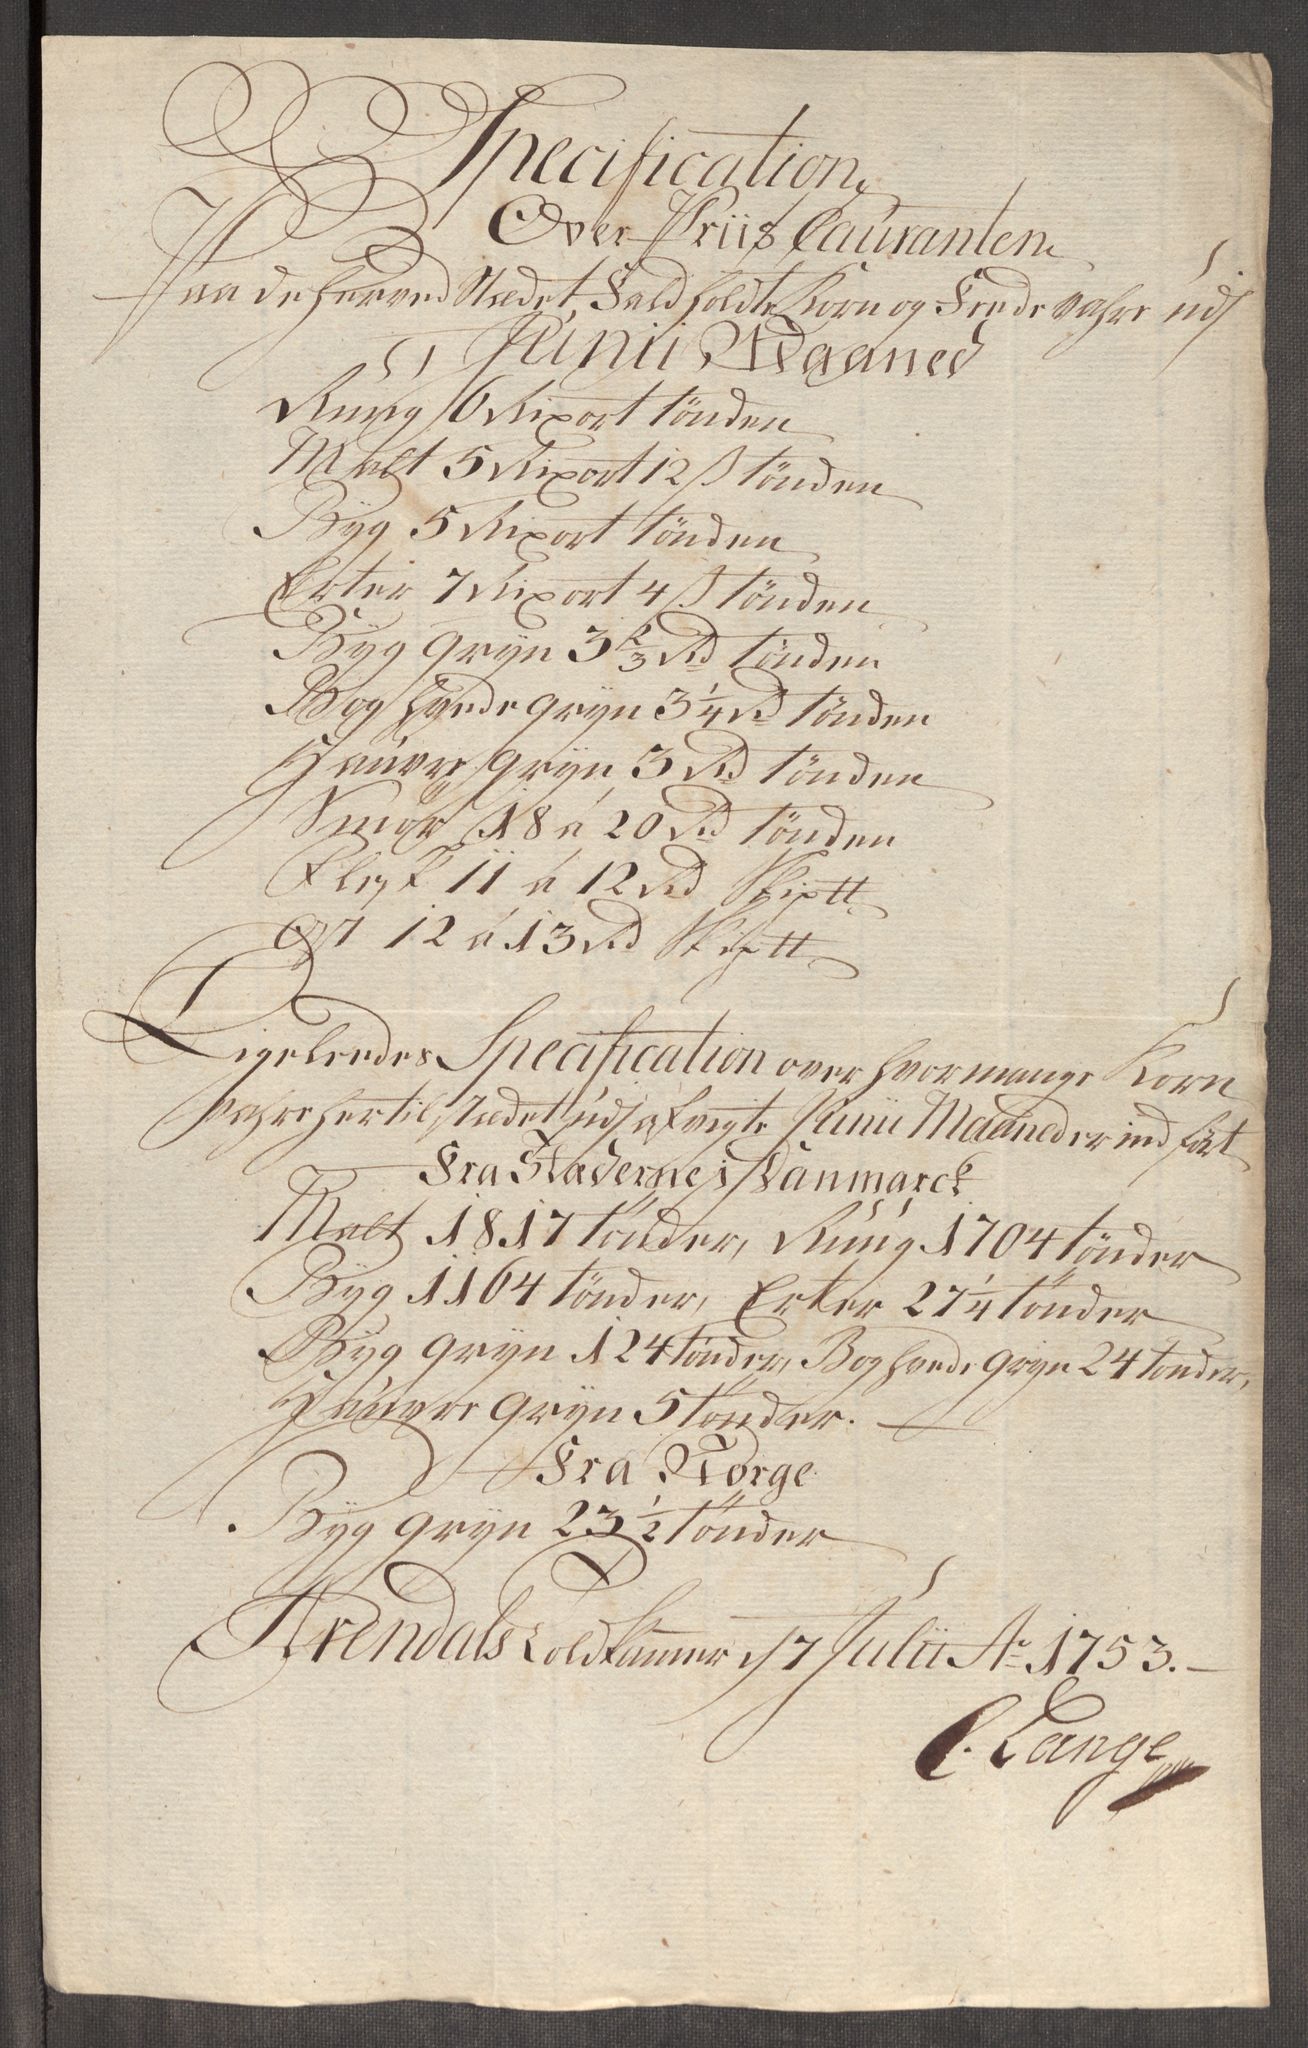 Specification
Over Priis Couranten
Paa de her ved Stædet Fald holdte Korn og Fede vahre udj
Junii Maaned
Rüug 6 Rixort tönden
Malt 5 Rixort 12 ß tönden
Byg 5 Rixort tönden
Erter 7 Rixort 4 ß tönden
Byg gryn 3 2/3 Rd tönden
Boghvede gryn 3 1/4 Rd tönden
Hauvre gryn 3 Rd tönden
Smör 18 á 20 Rd tönden
Flesk 11 á 12 Rd Skip tt
Ost 12 á 13 Rd Skip tt
Ligeleedes Specification over hvor mange Korn
vahre her til stædet udj afvigte Junii Maaned er ind fört
Fra Stæderne i Danmarck
Malt 1817 tönder, Rüug 1704 tönder
Byg 1164 tönder, Erter 27 1/4 tönder
Byg gryn 124 tönder, Boghvede gryn 24 tönder,
Hauvre gryn 5 tönder.
Fra Norge
Byg gryn 23 1/2 tönder
Arendals Toldkammer d 7 Julii Ao 1753.
C. Lange